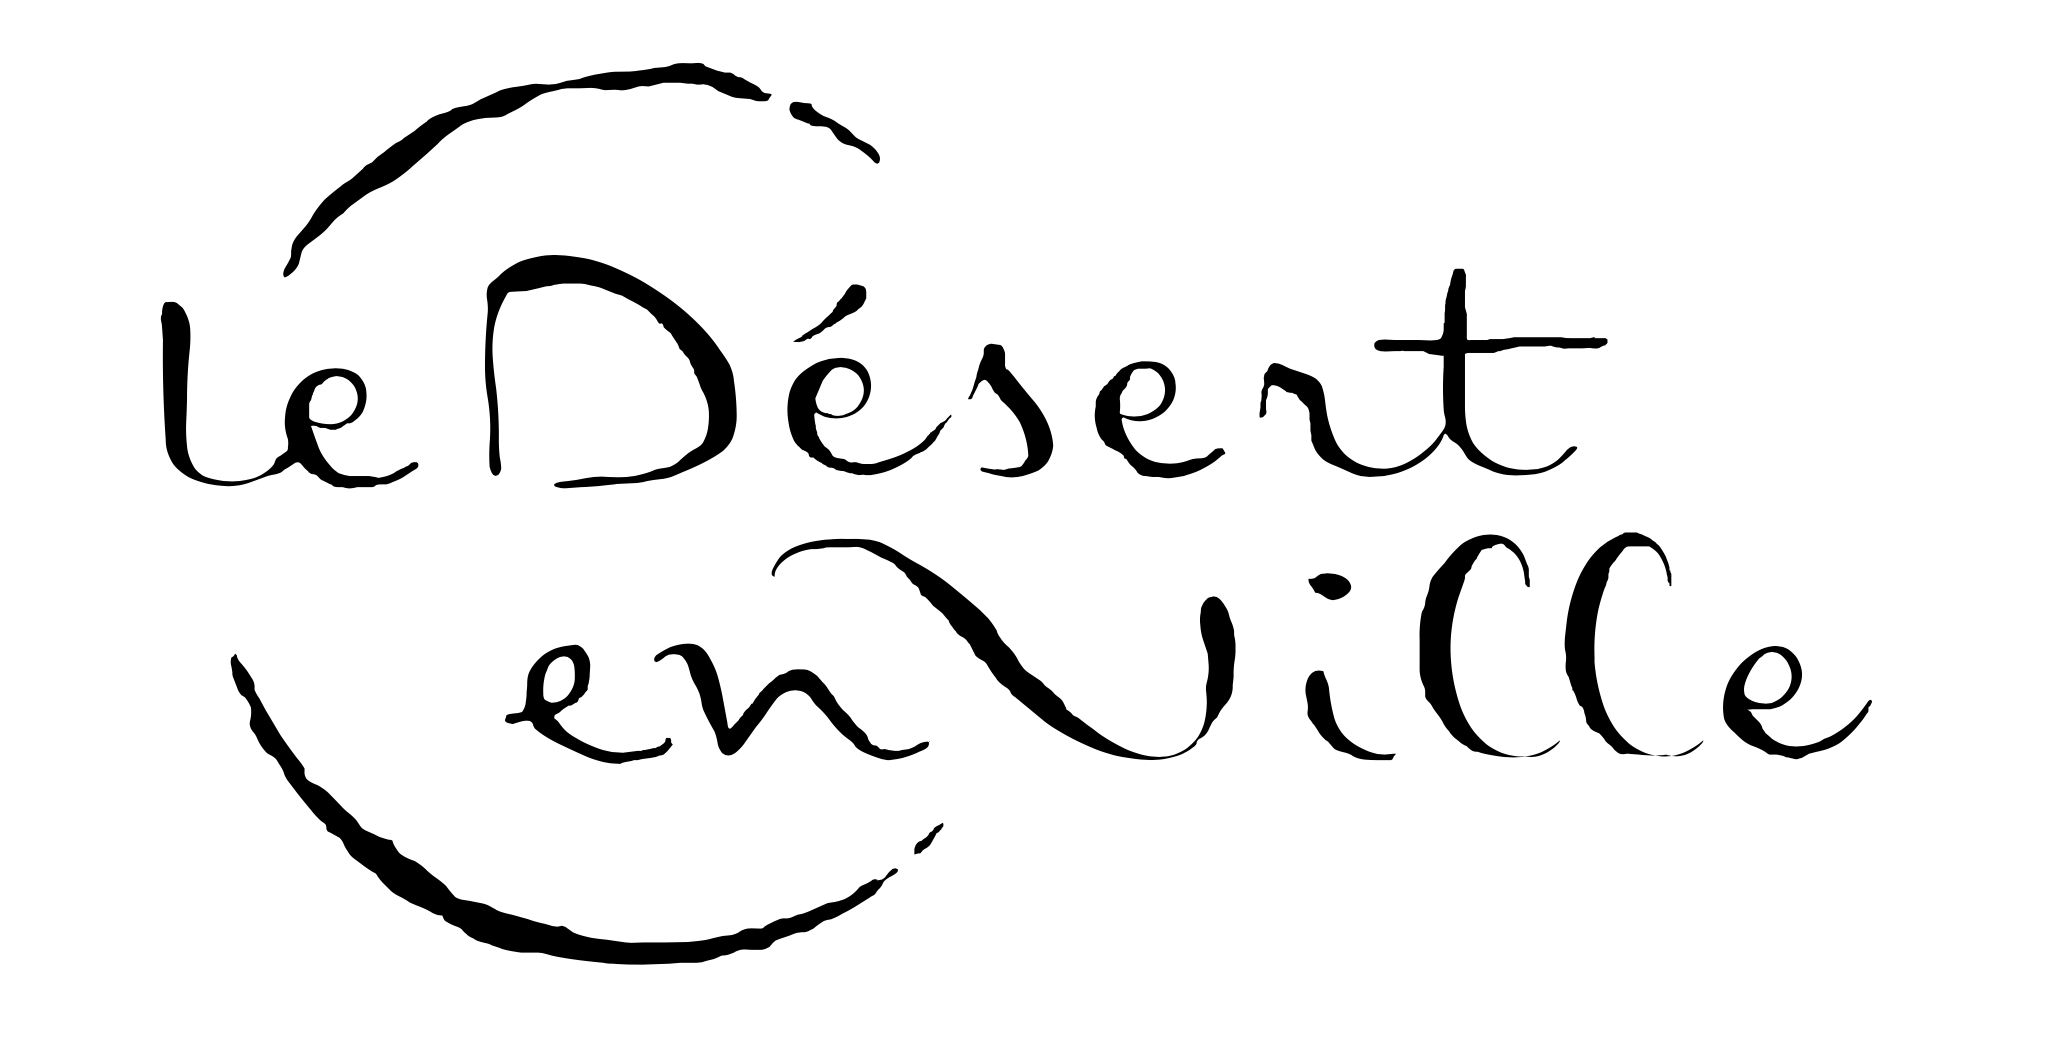 le Désert
en Ville